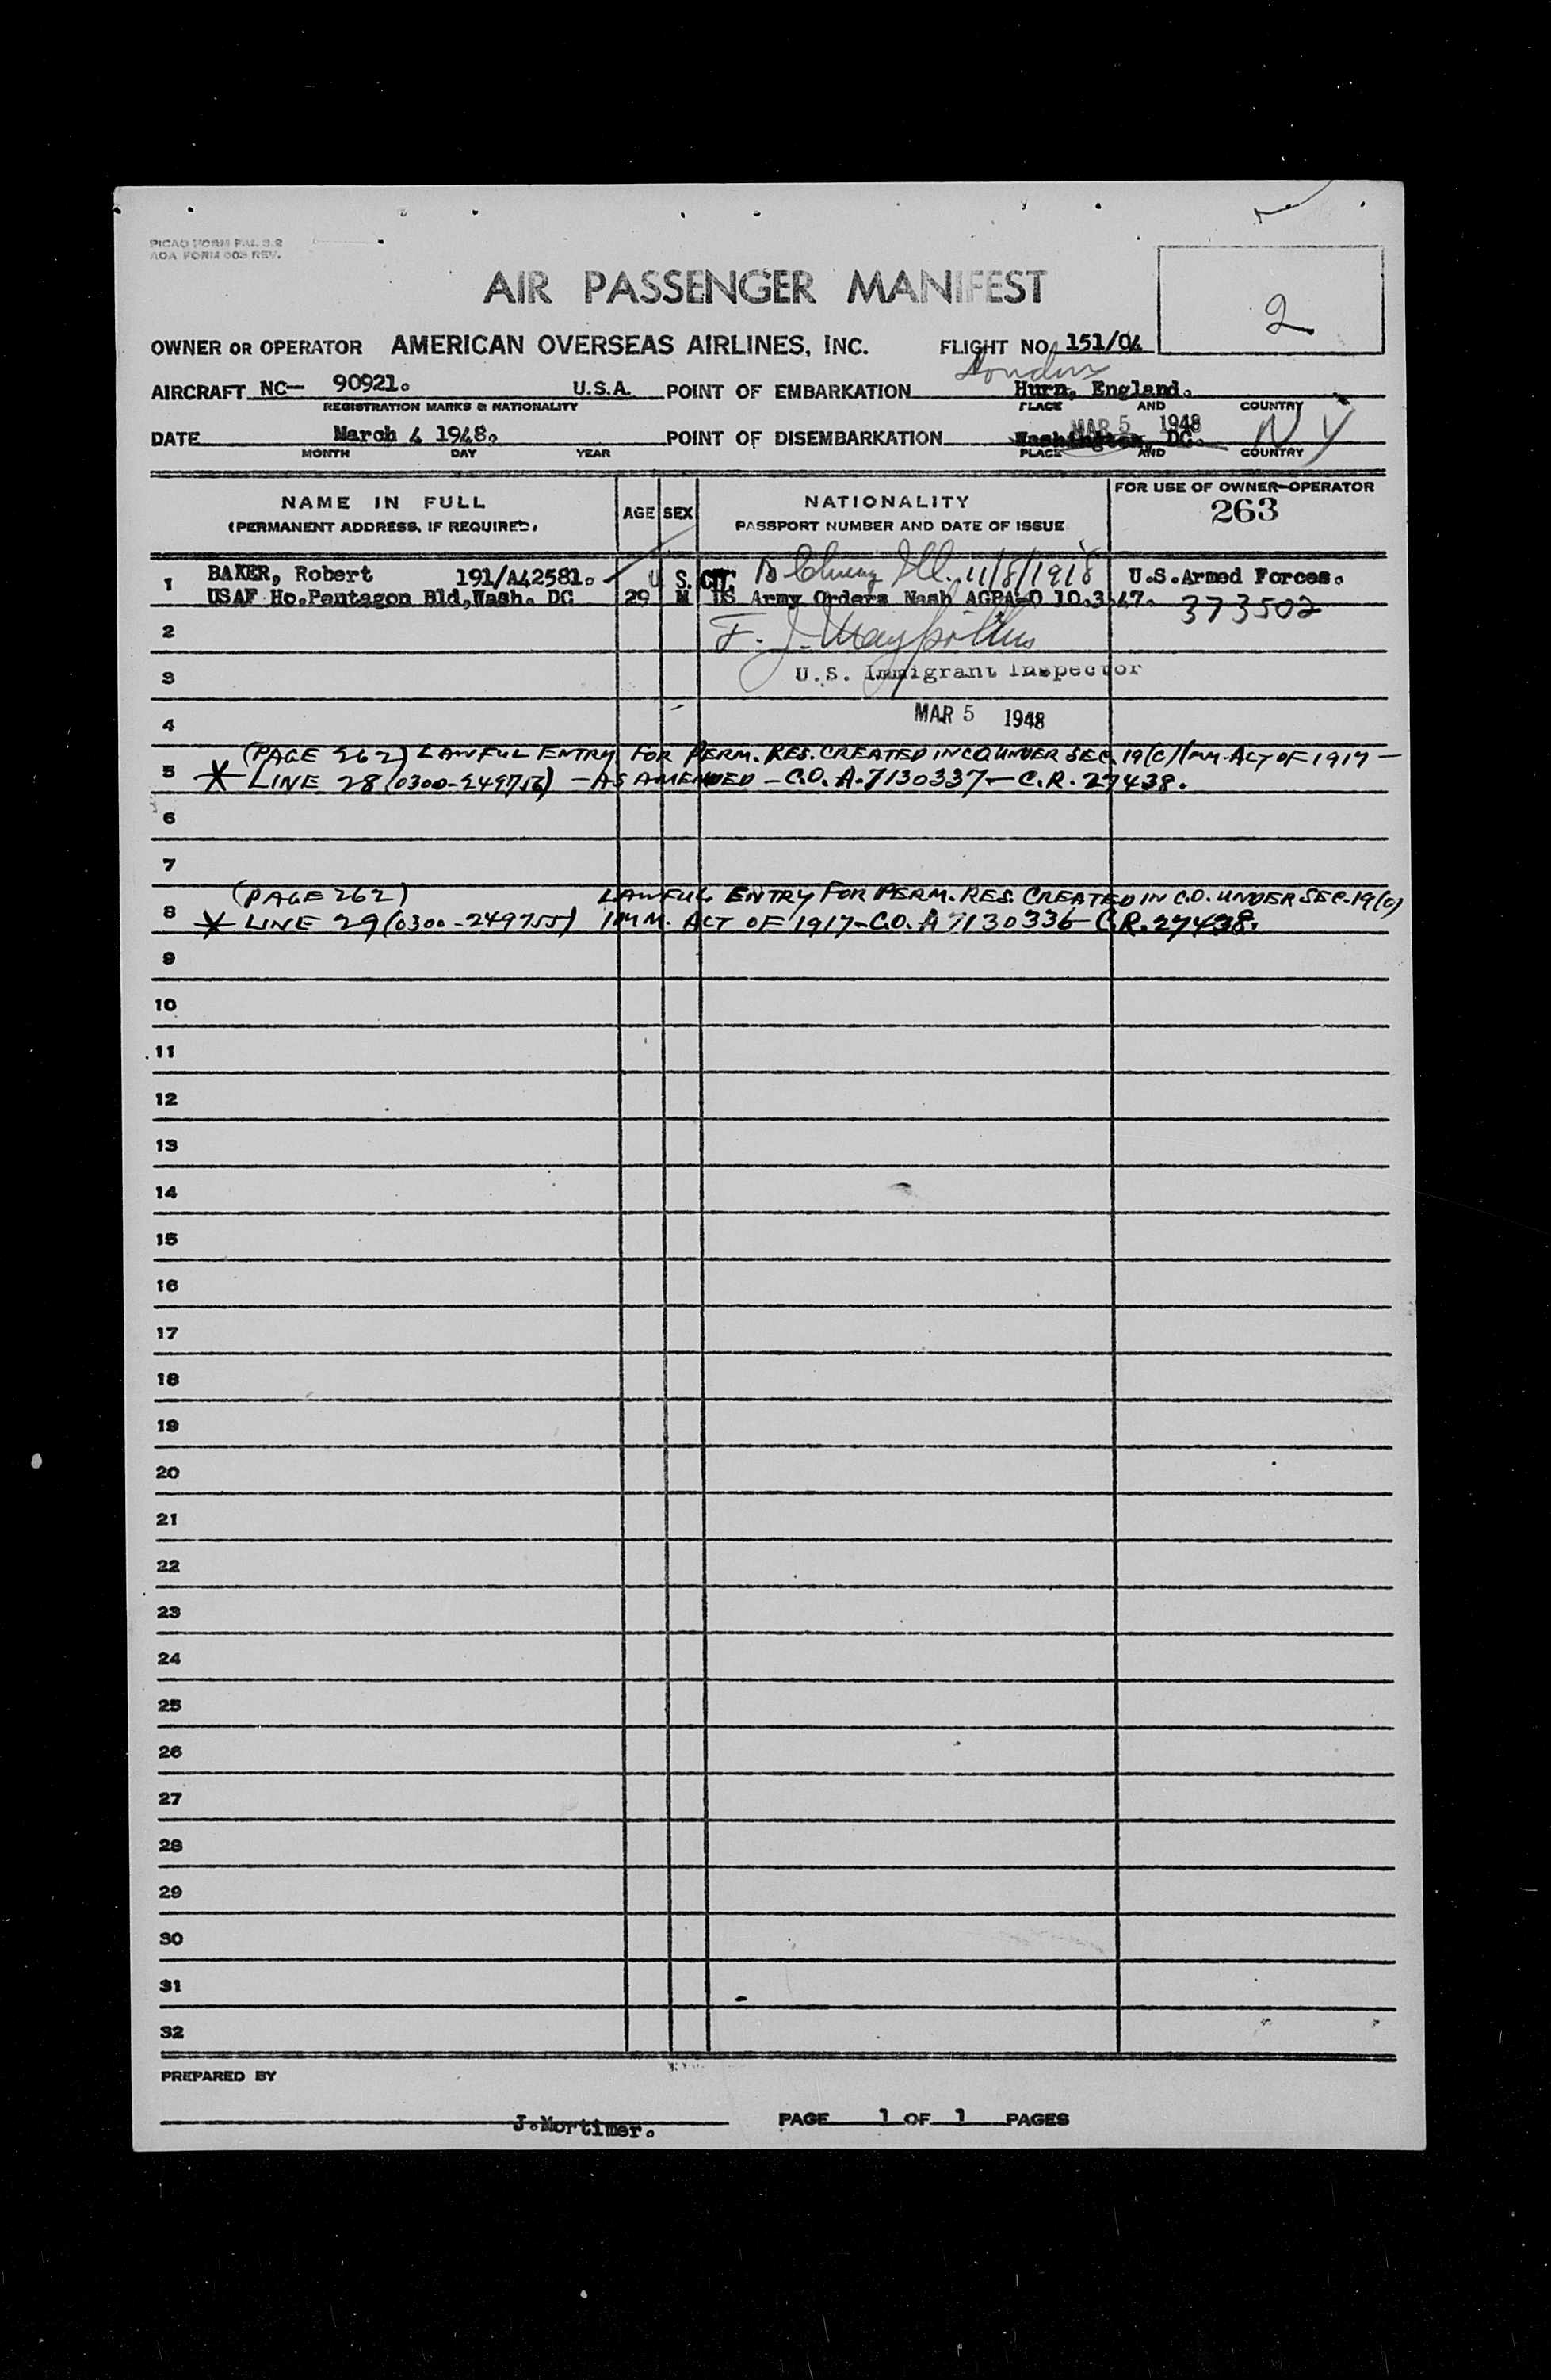 PICAO FORM PAL 3.2
AOA FORM 603 REV.
AIR PASSENGER MANIFEST
2
OWNER OR OPERATOR AMERICAN OVERSEAS AIRLINES, INC. FLIGHT NO. 151/04
London
AIRCRAFT NC— 90921. U.S.A. POINT OF EMBARKATION Hurn, England.
REGISTRATION MARKS & NATIONALITY PLACE AND COUNTRY
MAR 5 1948
DATE March 4 1948. POINT OF DISEMBARKATION Washington, DC. N Y
MONTH DAY YEAR PLACE AND COUNTRY
NAME IN FULL
(PERMANENT ADDRESS, IF REQUIRED)
AGE SEX
NATIONALITY
PASSPORT NUMBER AND DATE OF ISSUE
FOR USE OF OWNER-OPERATOR
263
1 BAKER, Robert 191/A42581. U. S. CIT. Ill. 11/8/1918 U.S.Armed Forces.
USAF Hq.Pentagon Bld,Wash. DC 29 M US Army Orders Wash AGPA-O 10.3.47. 373502
2 F. J.
3 U.S. Immigrant Inspector
4 MAR 5 1948
(PAGE 262) LAWFUL ENTRY FOR PERM. RES. CREATED IN CO UNDER SEC. 19(C) IMM. ACT OF 1917 —
5 * LINE 28 (0300-249756) — AS AMENDED — C.O. A-7130337 — C.R. 27438.
6
7
(PAGE 262) LAWFUL ENTRY FOR PERM. RES. CREATED IN C.O. UNDER SEC. 19(C)
8 * LINE 29 (0300-249755) IMM. ACT OF 1917 - C.O. A 7130336 C.R. 27438.
9
10
11
12
13
14
15
16
17
18
19
20
21
22
23
24
25
26
27
28
29
30
31
32
PREPARED BY
J.Mortimer. PAGE 1 OF 1 PAGES